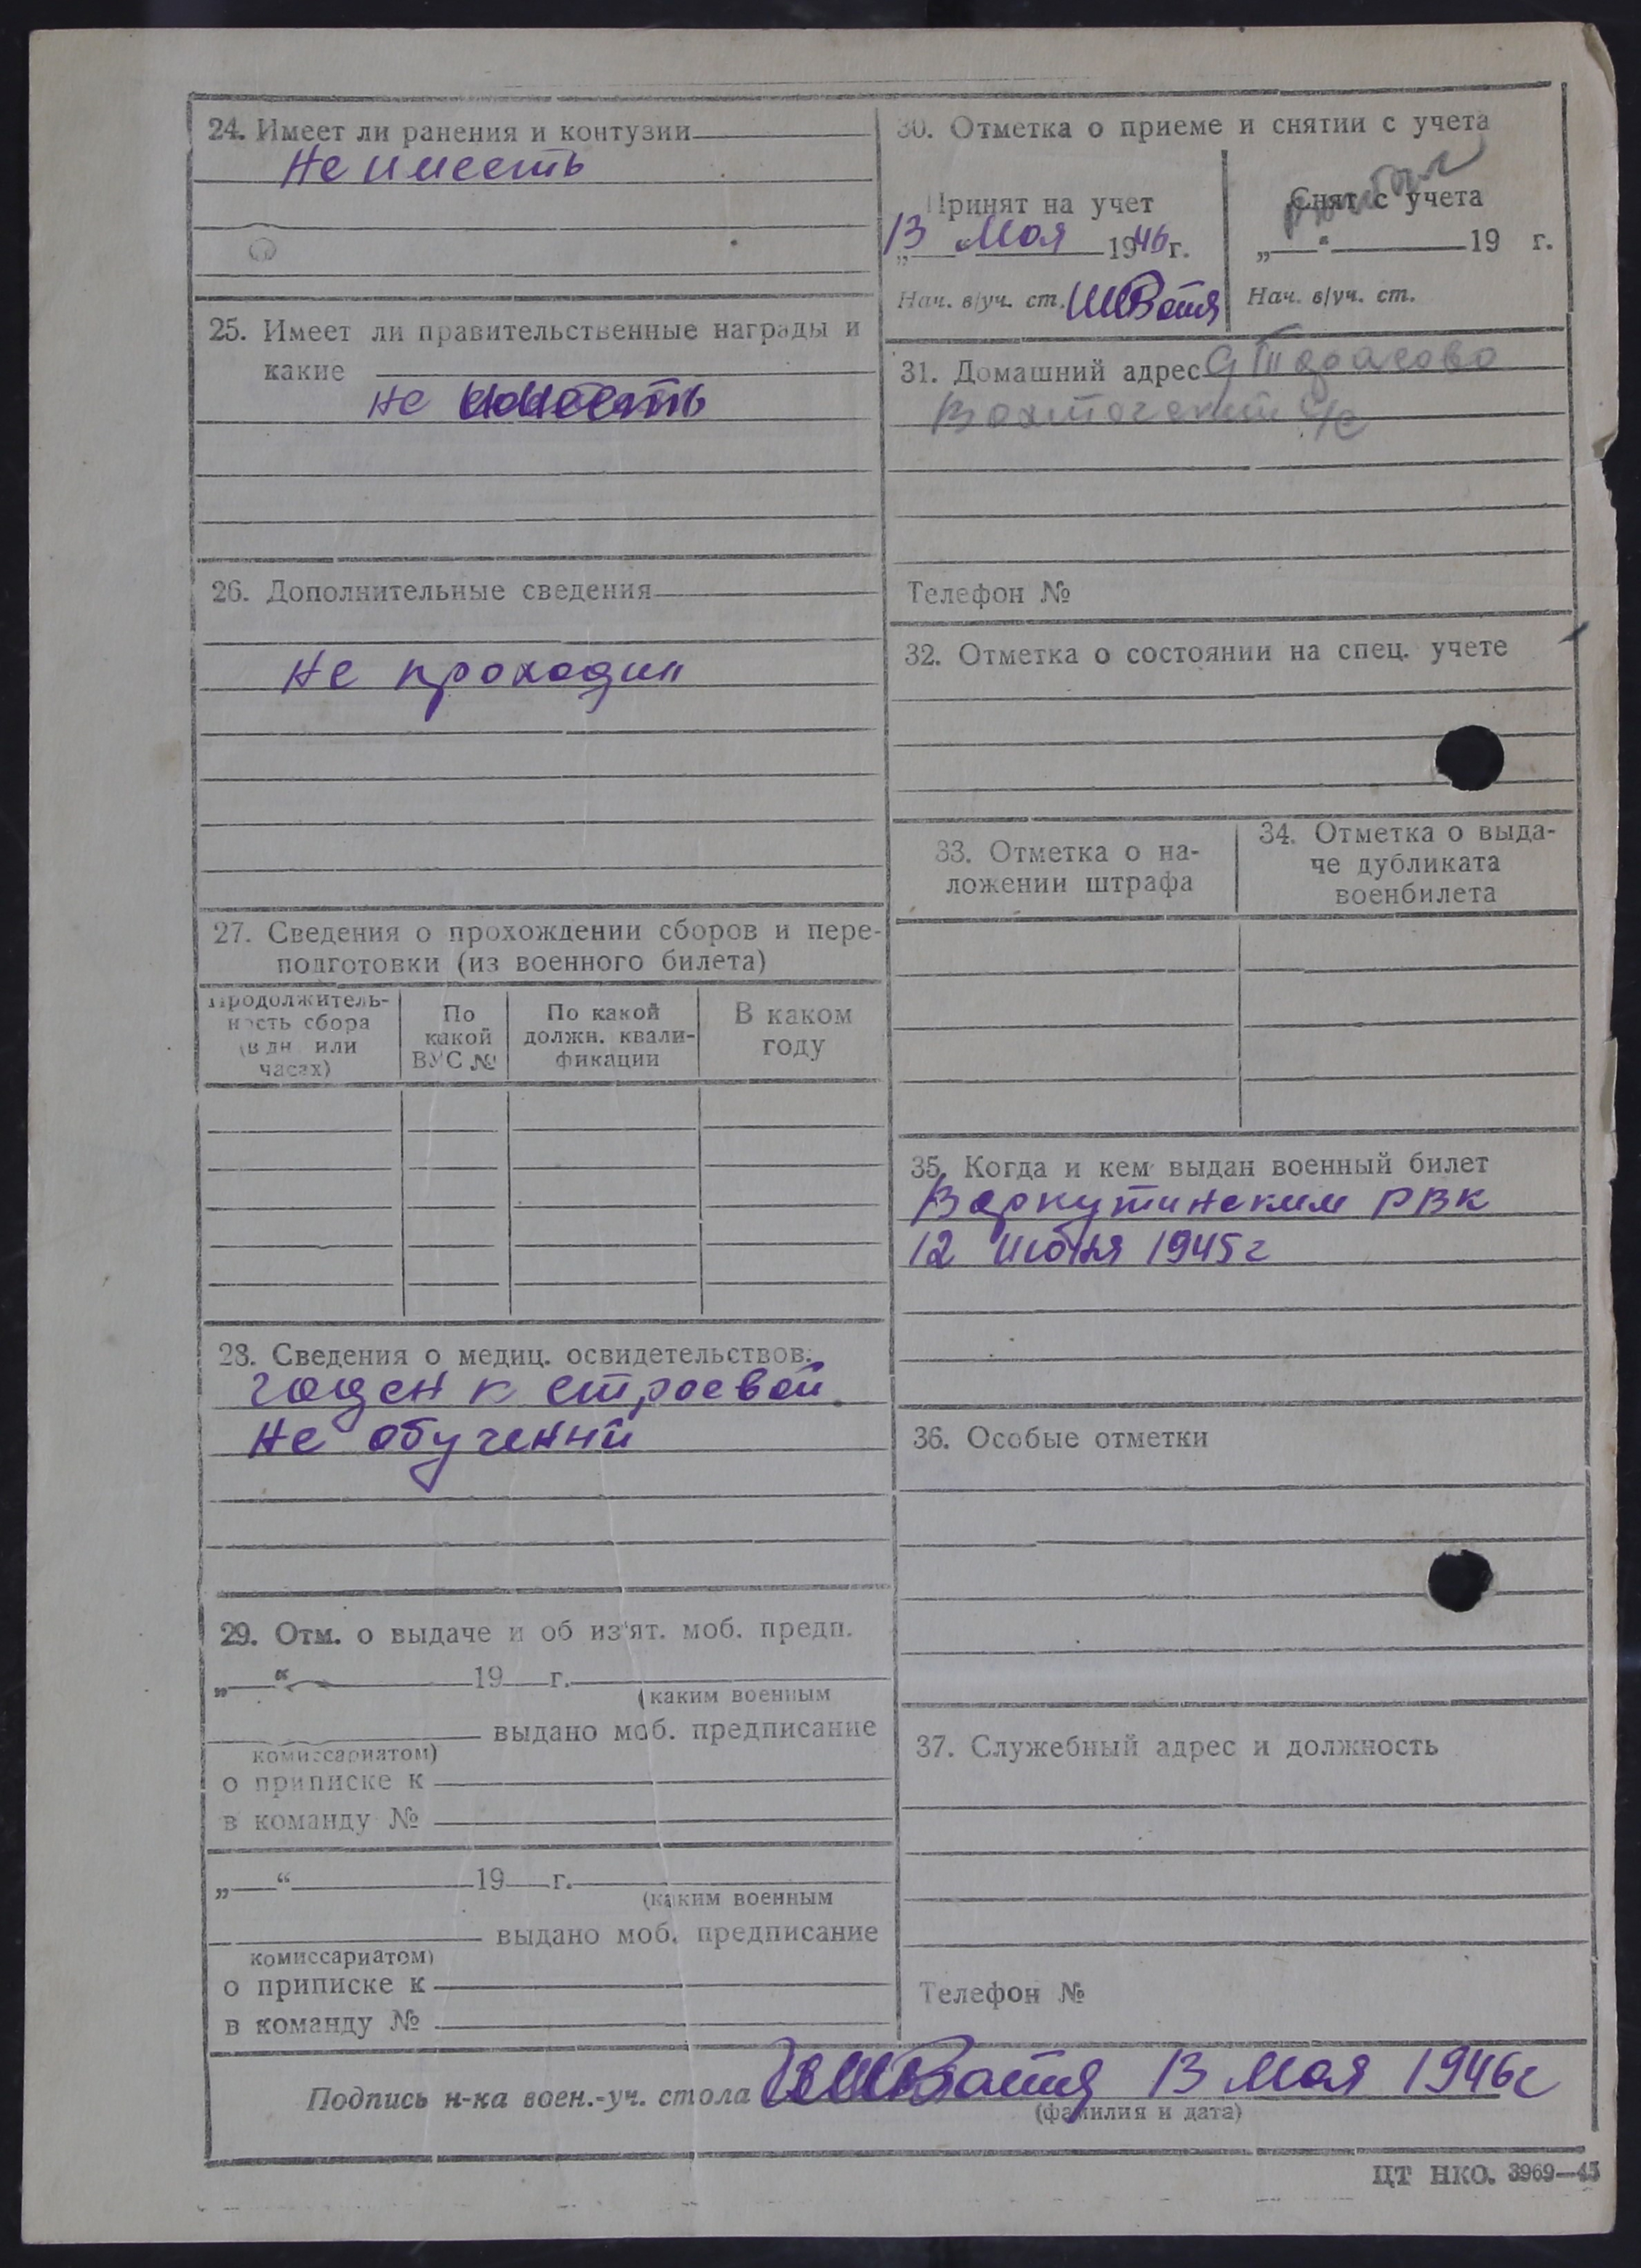 24. Имеет ли ранения и контузии
Не имееть
25. Имеет ли правительственные награды и
какие
не имееть
26. Дополнительные сведения
Не проходил
27. Сведения о прохождении сборов и пере-
подготовки (из военного билета)
Продолжитель-
ность сбора
(в дн. или
часах)
По
какой
ВУС №
По какой
должн. квали-
фикации
В каком
году
28. Сведения о медиц. освидетельствов.
годен к строевой
Не обучений
29. Отм. о выдаче и об из'ят. моб. предп.
„ “ 19 г.
(каким военным
выдано моб. предписание
комиссариатом)
о приписке к
в команду №
„ “ 19 г.
(каким военным
выдано моб. предписание
комиссариатом)
о приписке к
в команду №
30. Отметка о приеме и снятии с учета
Принят на учет
„13 “ Мая 1946 г.
Нач. в/уч. ст.
Снят с учета
„ “ 19 г.
Нач. в/уч. ст.
31. Домашний адрес
с/с
Телефон №
32. Отметка о состоянии на спец. учете
33. Отметка о на-
ложении штрафа
34. Отметка о выда-
че дубликата
военбилета
35. Когда и кем выдан военный билет
Воркутинским РВК
12 1945 г
36. Особые отметки
37. Служебный адрес и должность
Телефон №
Подпись н-ка воен.-уч. стола 13 Мая 1946 г
(фамилия и дата)
ЦТ НКО. 3969—45